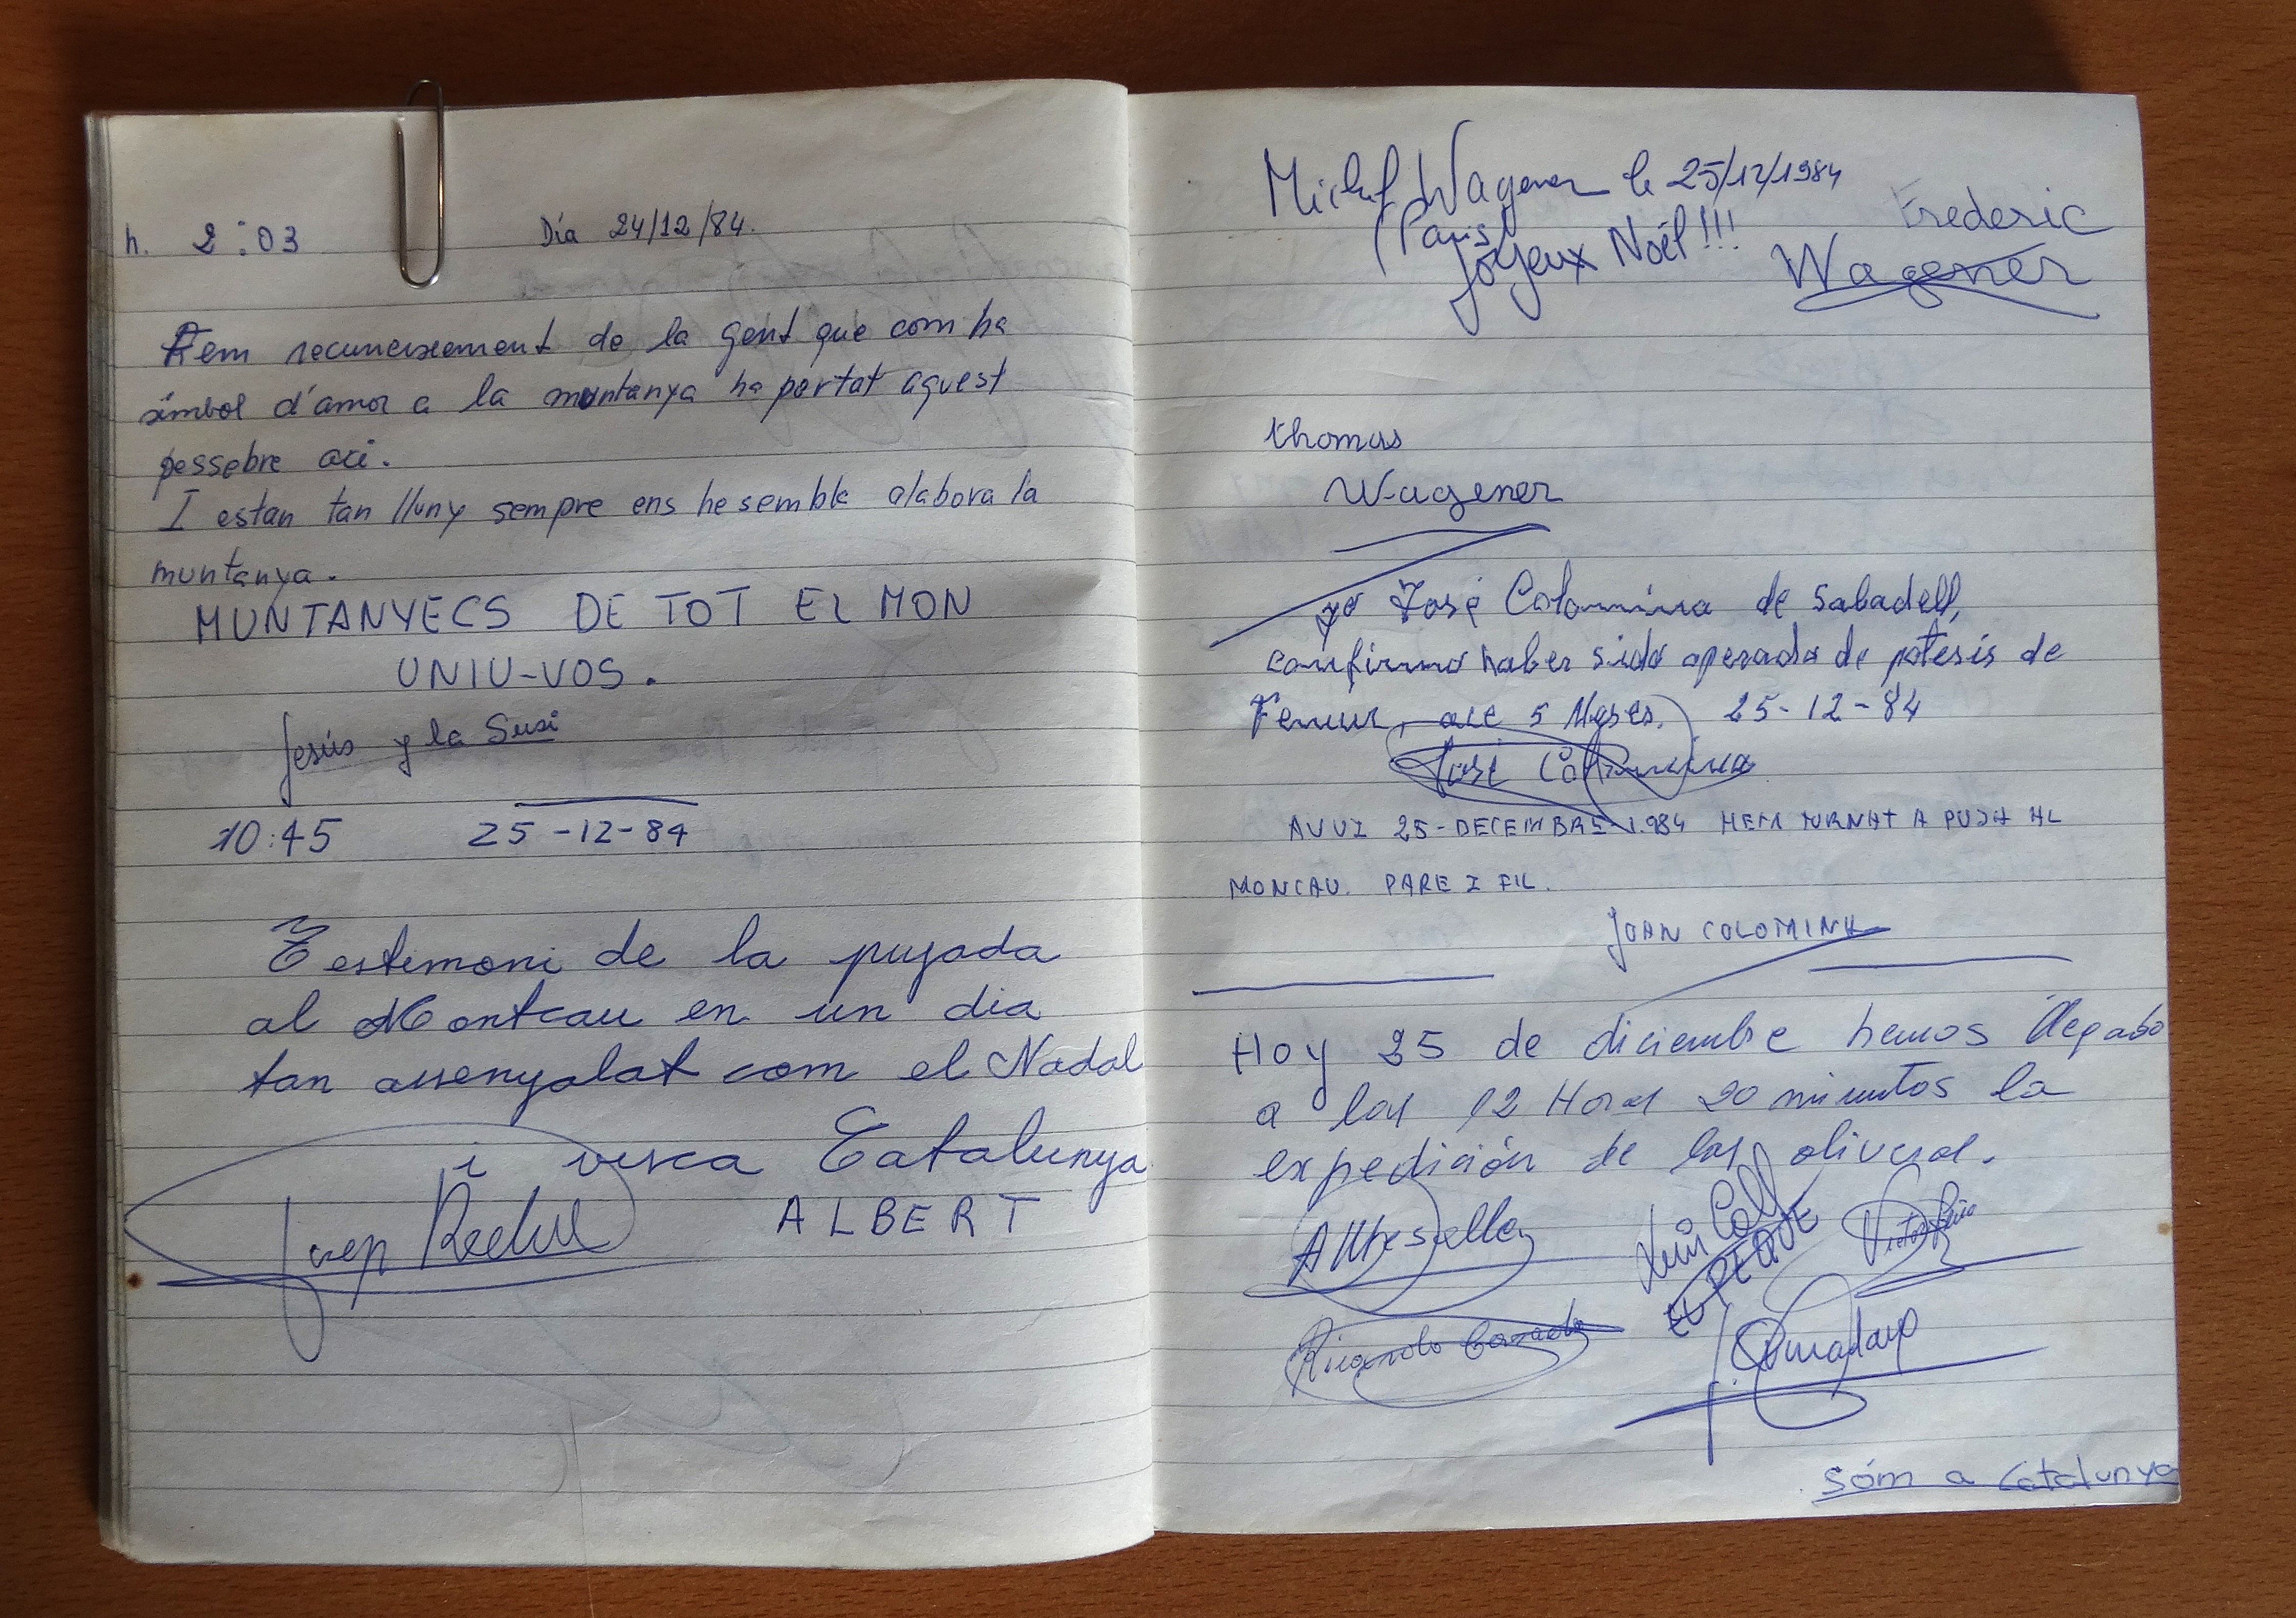 h. 2:03 Día 24/12/84.
Fem recuneixement de la gent que com ha
símbol d'amor a la muntanya ha portat aquest
pessebre aci.
I estan tan lluny sempre ens he sembla alabora la
muntanya.
MUNTANYECS DE TOT EL MON
UNIU-VOS.
Jesús y la Susi
10:45 25-12-84
Testimoni de la pujada
al Montcau en un dia
tan assenyalat com el Nadal
i visca Catalunya
Josep
ALBERT
Michel Wagener le 25/12/1984
(Paris)
Joyeux Noël!!!
Frederic
Wagener
thomas
Wagener
yo José Colomina de Sabadell,
confirmo haber sido operada de potesis de
Femur, ace 5 Meses. 25-12-84
José Colomina
AVUI 25-DECEMBRE 1.984 HEM TURNAT A PUJA AL
MONCAU. PARE I FIL.
JOAN COLOMINA
Hoy 25 de diciembre hemos llegado
a las 12 Horas 20 minutos la
expedición de las oliveras.
Luis Coll
EL PEQUE
Ricardo
Sóm a Catalunya